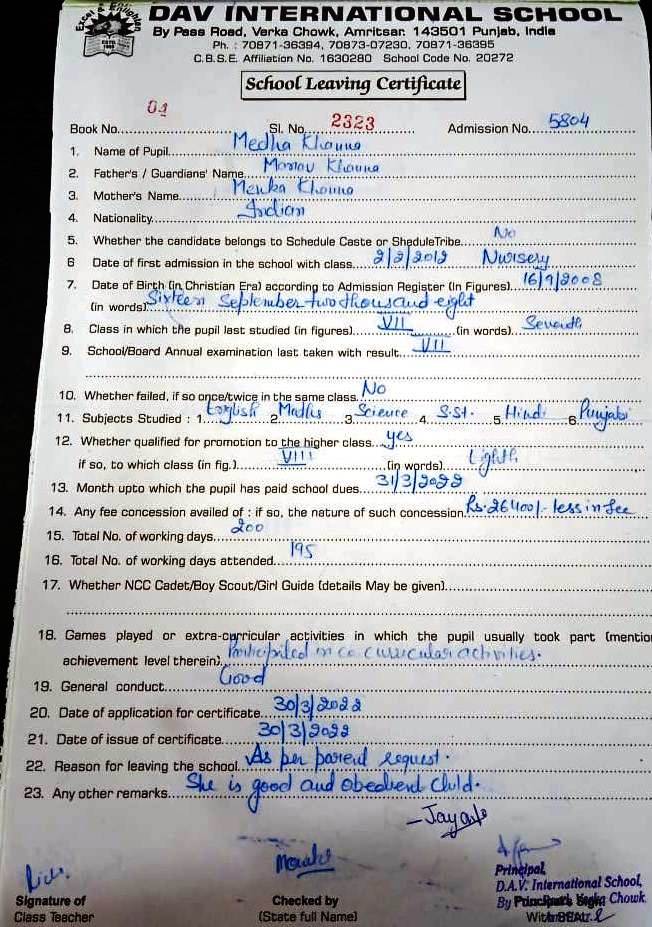 Excel & Enlighten
ESTD.
DAV INTERNATIONAL SCHOOL
By Pass Road, Verka Chowk, Amritsar. 143501 Punjab, India
Ph. : 70871-36394, 70873-07230, 70871-36395
C.B.S.E. Affiliation No. 1630280 School Code No. 20272
School Leaving Certificate
Book No. 01 Sl. No. 2323 Admission No. 5804
1. Name of Pupil Medha Khanna
2. Father's / Guardians' Name Manav Khanna
3. Mother's Name Menka Khanna
4. Nationality Indian
5. Whether the candidate belongs to Schedule Caste or SheduleTribe No
6 Date of first admission in the school with class 2/2/2012 Nursery
7. Date of Birth (in Christian Era) according to Admission Register (In Figures) 16/9/2008
(in words) Sixteen September two thousand eight
8. Class in which the pupil last studied (in figures) VII (in words) Seventh
9. School/Board Annual examination last taken with result VII
10. Whether failed, if so once/twice in the same class No
11. Subjects Studied : 1. English 2. Maths 3. Science 4. S.St. 5. Hindi 6. Punjabi
12. Whether qualified for promotion to the higher class yes
if so, to which class (in fig.) VIII (in words) Eighth
13. Month upto which the pupil has paid school dues 31/3/2022
14. Any fee concession availed of : if so, the nature of such concession Rs. 26400/- less in fee
15. Total No. of working days 200
16. Total No. of working days attended 195
17. Whether NCC Cadet/Boy Scout/Girl Guide (details May be given)
18. Games played or extra-curricular activities in which the pupil usually took part (mention
achievement level therein) Participated in co curricular activities.
19. General conduct Good
20. Date of application for certificate 30/3/2022
21. Date of issue of certificate 30/3/2022
22. Reason for leaving the school As per parent request.
23. Any other remarks She is good and obedient Child.
Signature of
Class Teacher
Checked by
(State full Name)
Principal,
D.A.V. International School,
By Pass Verka Chowk
Principal's Sign
With SEAL